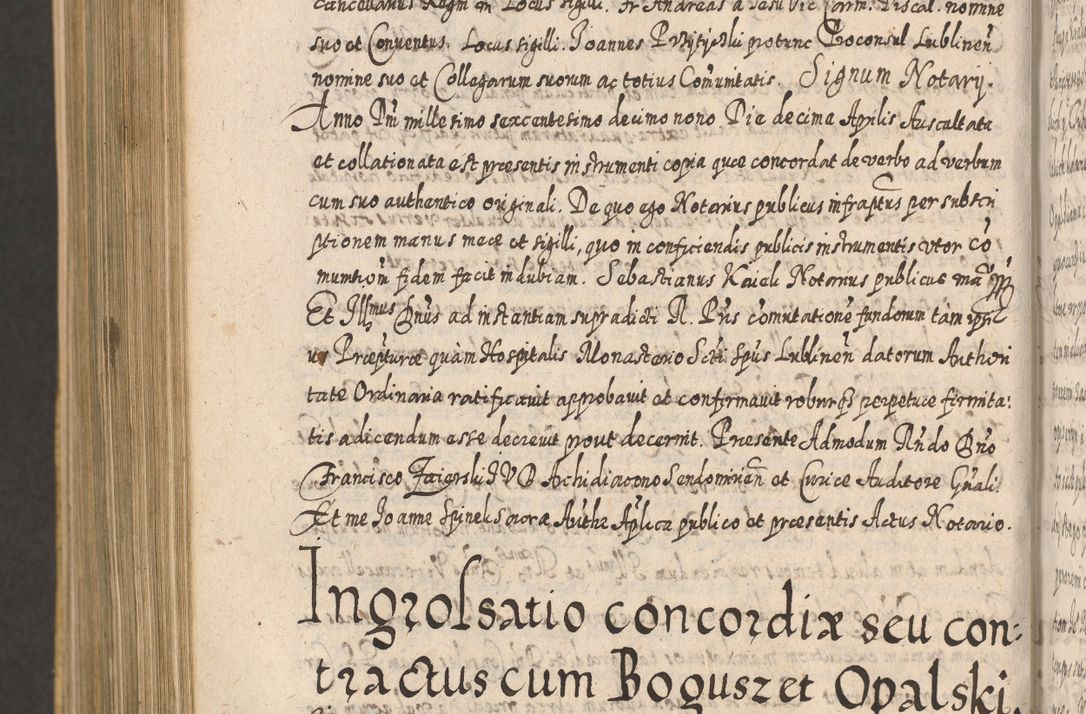 Cancellarius Regni m Locus sigilli. Fr Andreas a Jesu Vic form. Discal. nomine
suo et Conuentus. Locus sigilli. Joannes Przytycki protunc Proconsul Lublineñ
nomine suo et Collegarum suorum ac totius Comunitatis. Signum Notarij.
Anno Dni millesimo sexcentesimo decimo nono Die decima Aprilis Auscultata
et collationata est præsentis instrumenti copia quæ concordat de verbo ad verbum
cum suo authentico originali. De quo ego Notarius publicus infraptus per subscri
ptionem manus meæ et sigilli, quo in conficiendis publicis instrumentis utor co
munition fidem facit indubiam. Sebastianus Notarius publicus
Et Illmus Dnus ad instantiam supradicti R. Pris comutatione fundorum tam ipsi
us Præpturæ quàm Hospitalis Monasterio Scti Spus Lublineñ datorum Authori
tate Ordinaria ratificauit approbauit et confirmauit roburq3 perpetuæ firmita:
tis adicendum esse decreuit prout decernit. Presente Admodum Rndo Dno
Francisco IVD Archidiacono Sendomirieñ et Curiæ Auditore Gnali.
Et me Joanne Spinek Sacra Autha Aplica publico et præsentis Actus Notario.
Ingrossatio concordiæ seu con:
tractus cum Bogusz et Opalski.